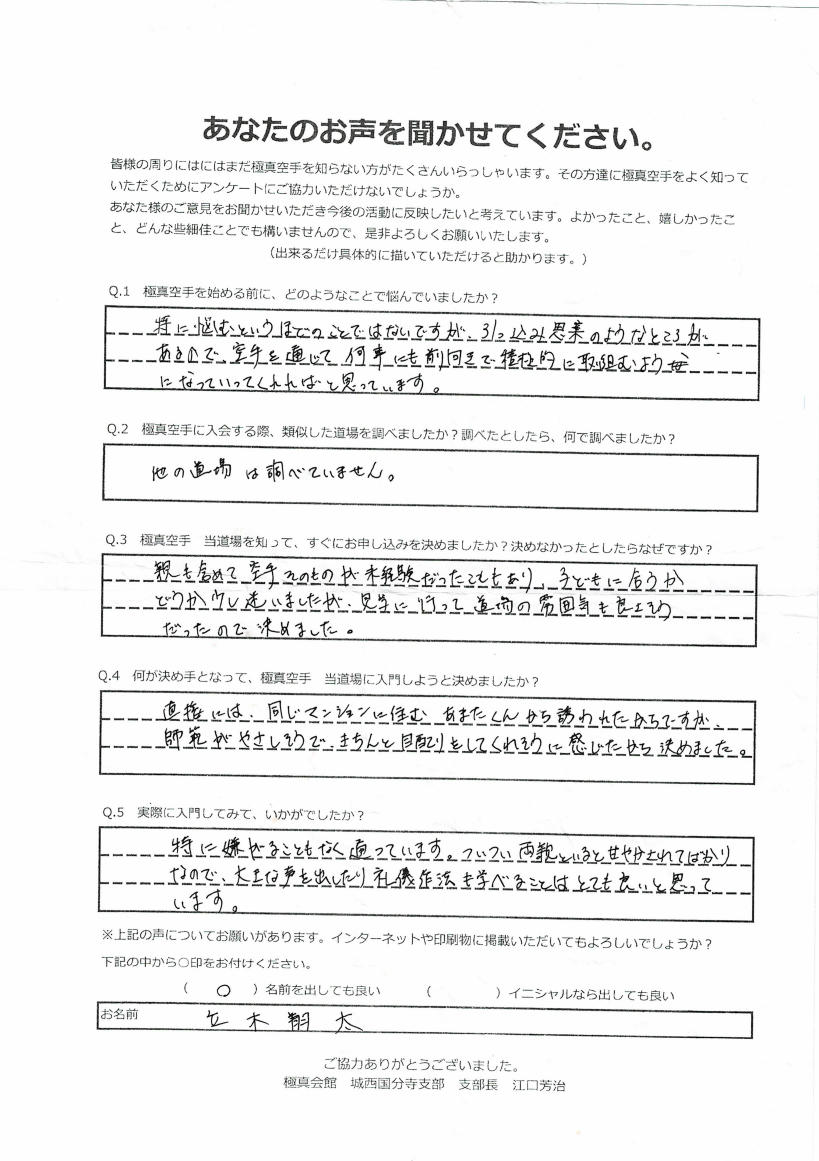 あなたのお声を聞かせてください。
皆様の周りにはにはまだ極真空手を知らない方がたくさんいらっしゃいます。その方達に極真空手をよく知って
いただくためにアンケートにご協力いただけないでしょうか。
あなた様のご意見をお聞かせいただき今後の活動に反映したいと考えています。よかったこと、嬉しかったこ
と、どんな些細佳ことでも構いませんので、是非よろしくお願いいたします。
（出来るだけ具体的に描いていただけると助かります。）
Q.1 極真空手を始める前に、どのようなことで悩んでいましたか？
特に悩むというほどのことではないですが、引っ込み思案のようなところが
あるので、空手を通じて何事にも前向きで積極的に取り組むよう
になっていってくれればと思っています。
Q.2 極真空手に入会する際、類似した道場を調べましたか？調べたとしたら、何で調べましたか？
他の道場は調べていません。
Q.3 極真空手 当道場を知って、すぐにお申し込みを決めましたか？決めなかったとしたらなぜですか？
親も含めて空手そのものが未経験だったこともあり、子どもに合うか
どうか少し迷いましたが、見学に行って道場の雰囲気も良さそう
だったので決めました。
Q.4 何が決め手となって、極真空手 当道場に入門しようと決めましたか？
直接には、同じマンションに住むあまたくんから誘われたからですが、
師範がやさしそうで、きちんと目配りをしてくれそうに感じたから決めました。
Q.5 実際に入門してみて、いかがでしたか？
特に嫌がることもなく通っています。ついつい両親といると甘やかされてばかり
なので、大きな声を出したり礼儀作法も学べることはとても良いと思って
います。
※上記の声についてお願いがあります。インターネットや印刷物に掲載いただいてもよろしいでしょうか？
下記の中から○印をお付けください。
（ ○ ）名前を出しても良い （ ）イニシャルなら出しても良い
お名前 立木翔太
ご協力ありがとうございました。
極真会館 城西国分寺支部 支部長 江口芳治